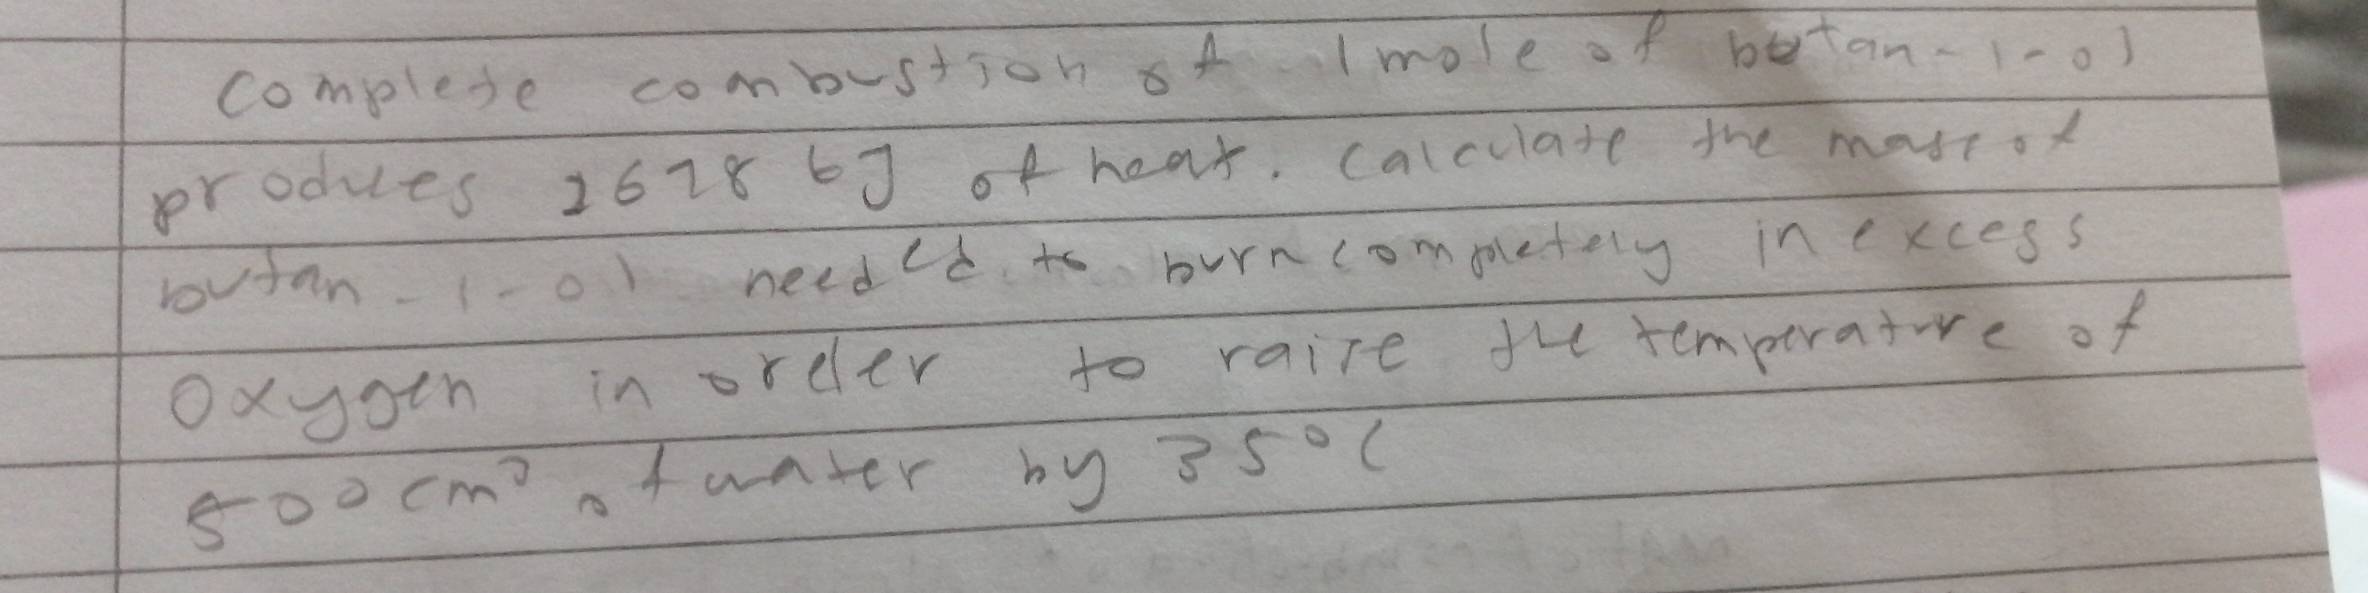 Complete combustion of 1 mole of butan-1-ol
produces 2678 kJ of heat. Calculate the mass of
butan-1-ol needed to burn completely in excess
Oxygen in order to raise the temperature of
500cm³ of water by 35°C